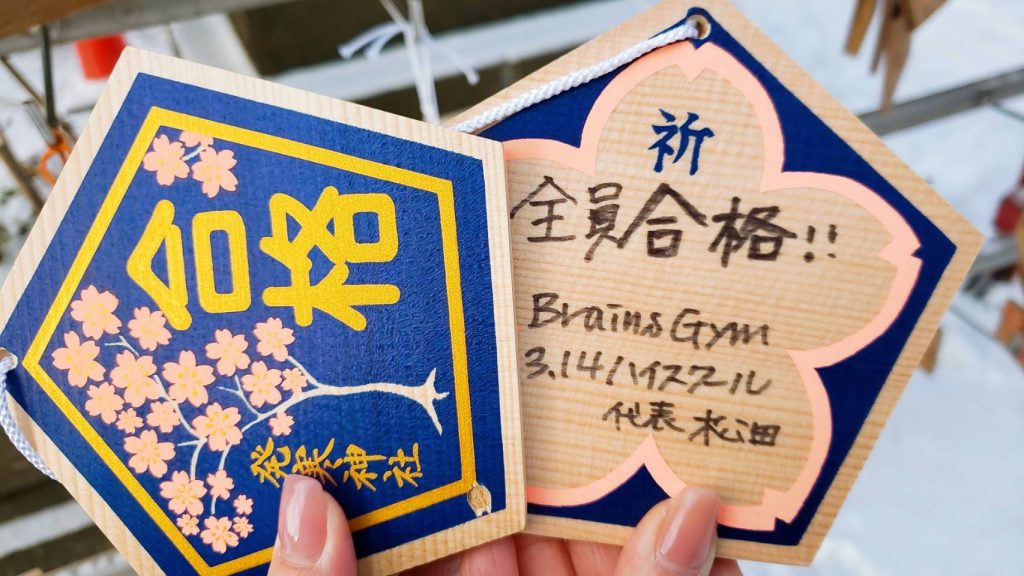 合格
発寒神社
祈
全員合格!!
Brains Gym
3.14/ハイスクール
代表 松田